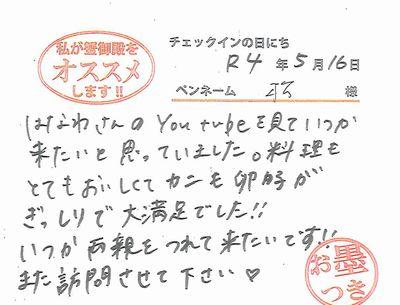 私が蟹御殿を
オススメ
します!!
チェックインの日にち
R4年5月16日
ペンネーム 様
はなわさんのYoutubeを見ていつか
来たいと思っていました。料理も
とてもおいしくてカニも卵が
ぎっしりで大満足でした!!
いつか両親をつれて来たいです!!
また訪問させて下さい♡
お墨
つき